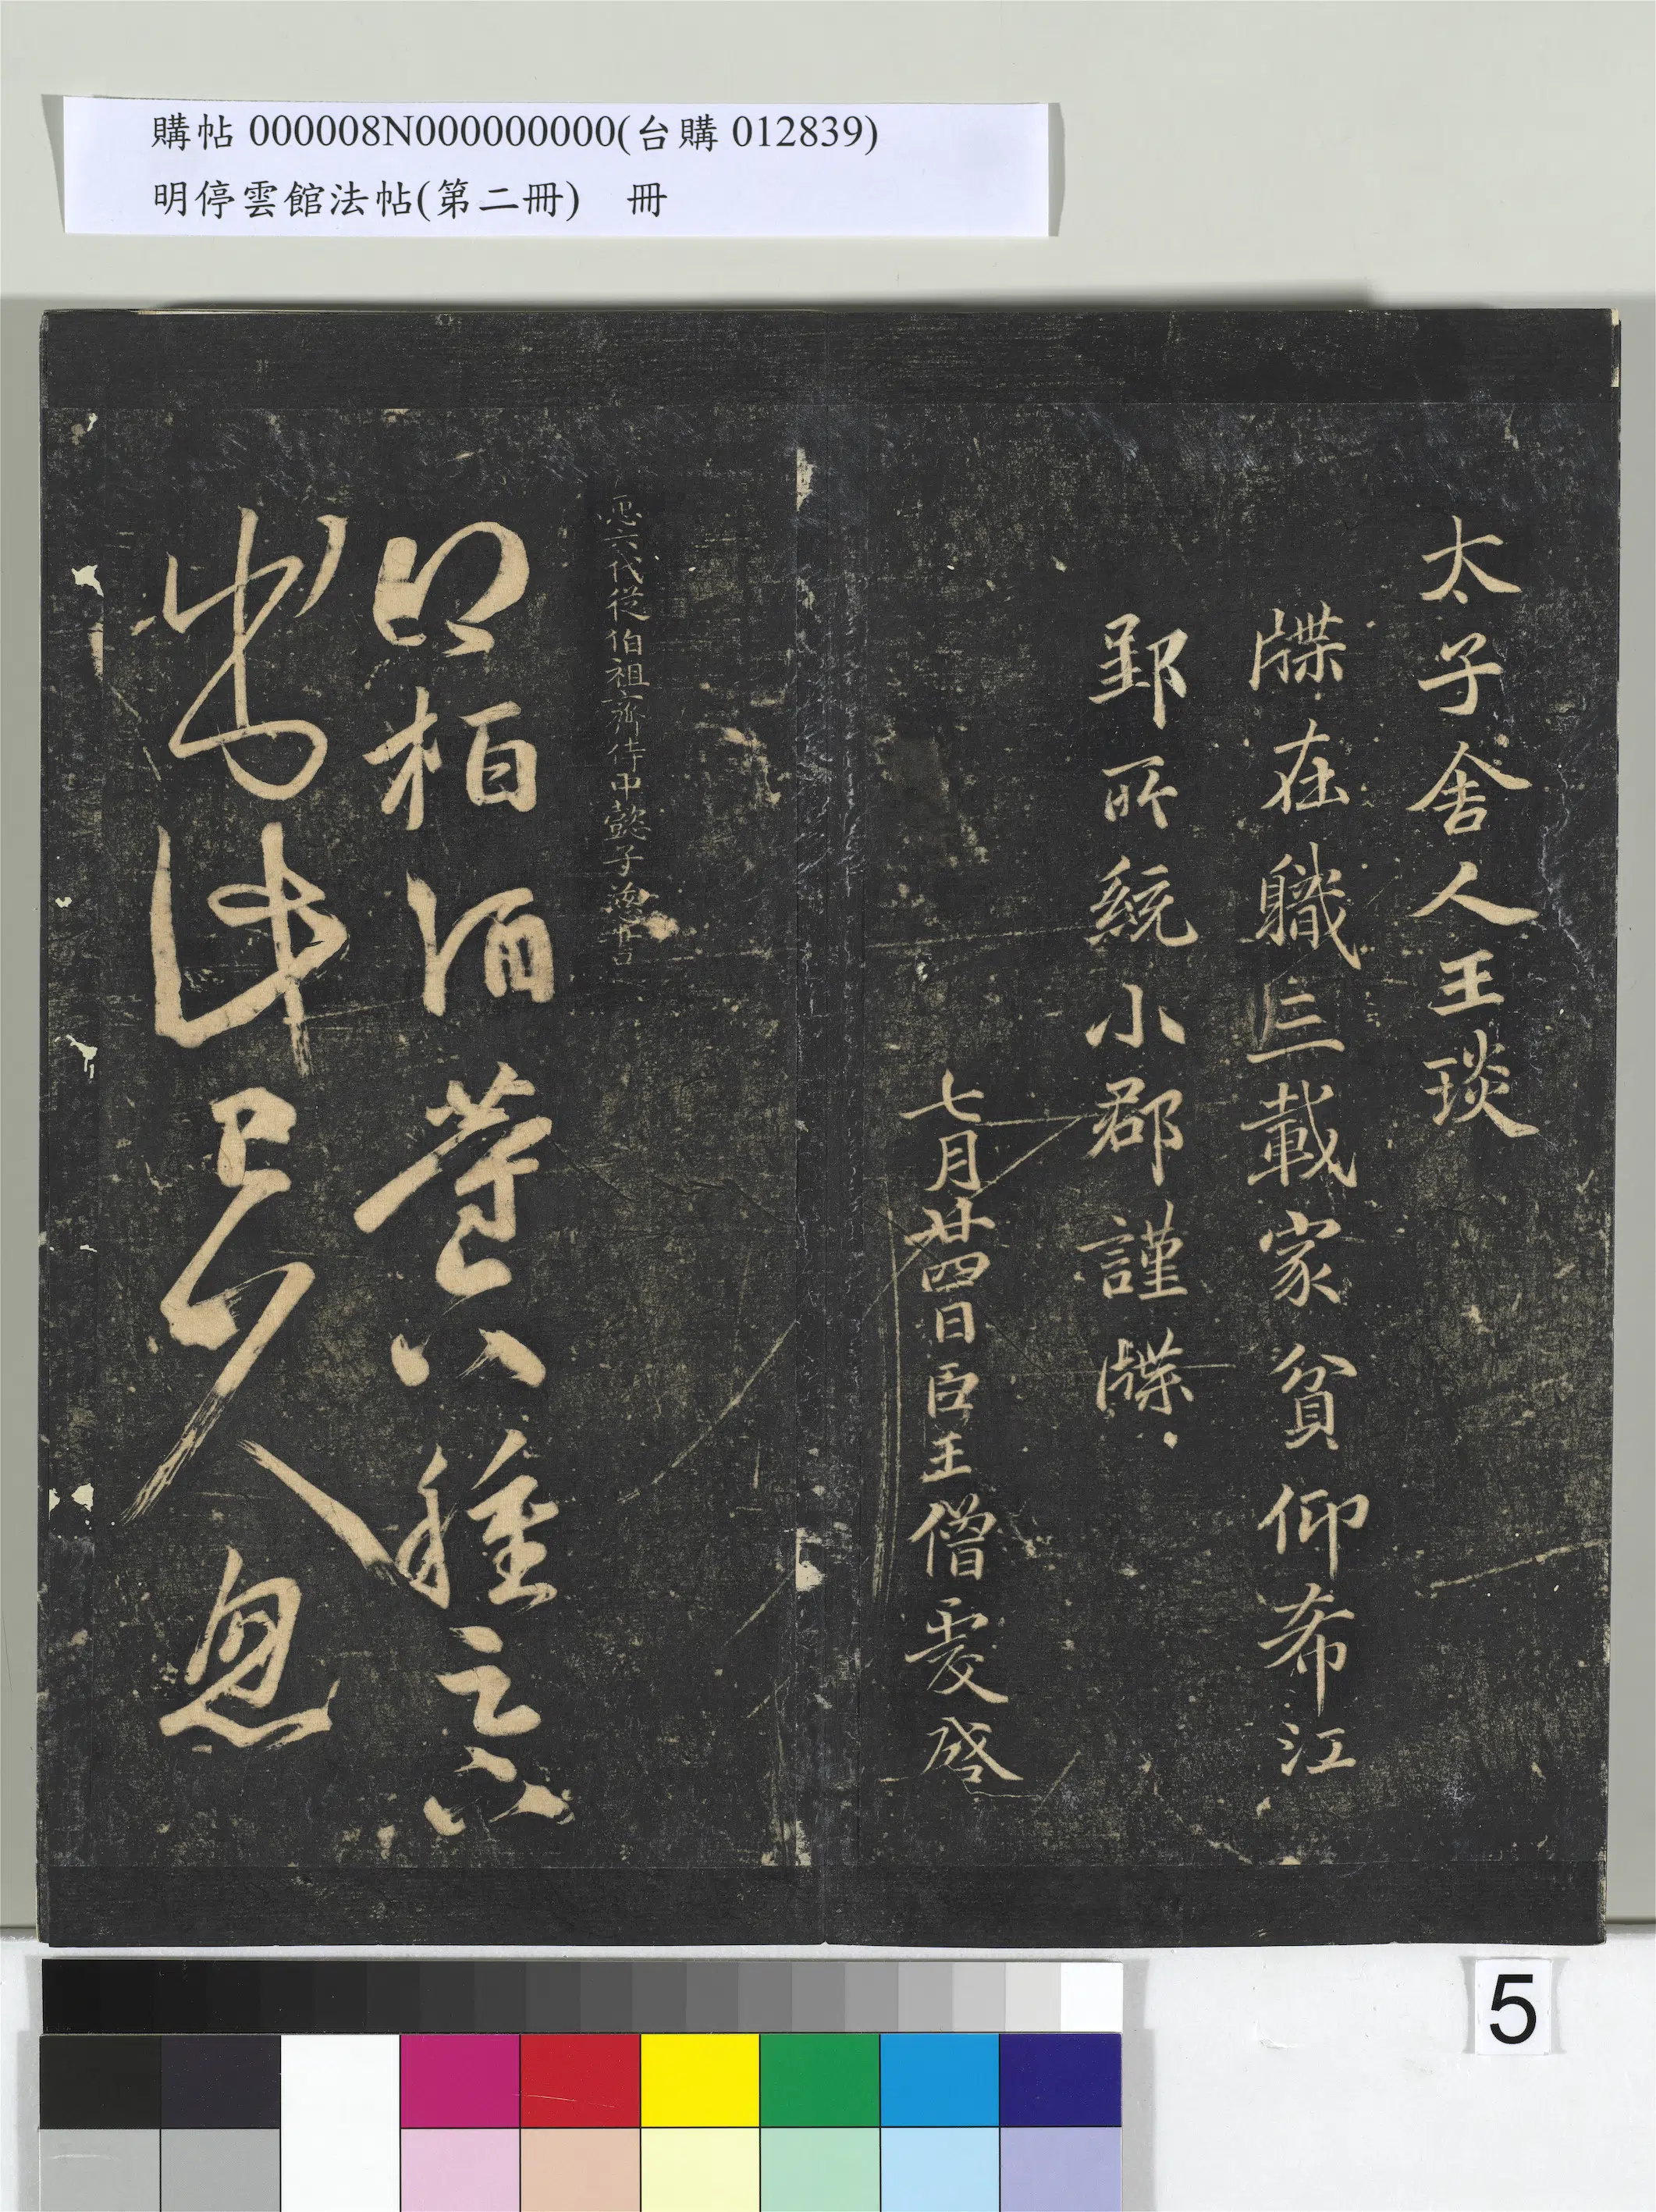 購帖 000008N000000000(台購 012839)
明停雲館法帖(第二冊) 冊
太子舍人王琰
牒在職三載家貧仰希江
郢所統小郡謹牒
七月廿四日臣王僧虔啓
臣六代從伯祖齊侍中懿子慈書
得柏酒等六種足下
出此已久忽
5